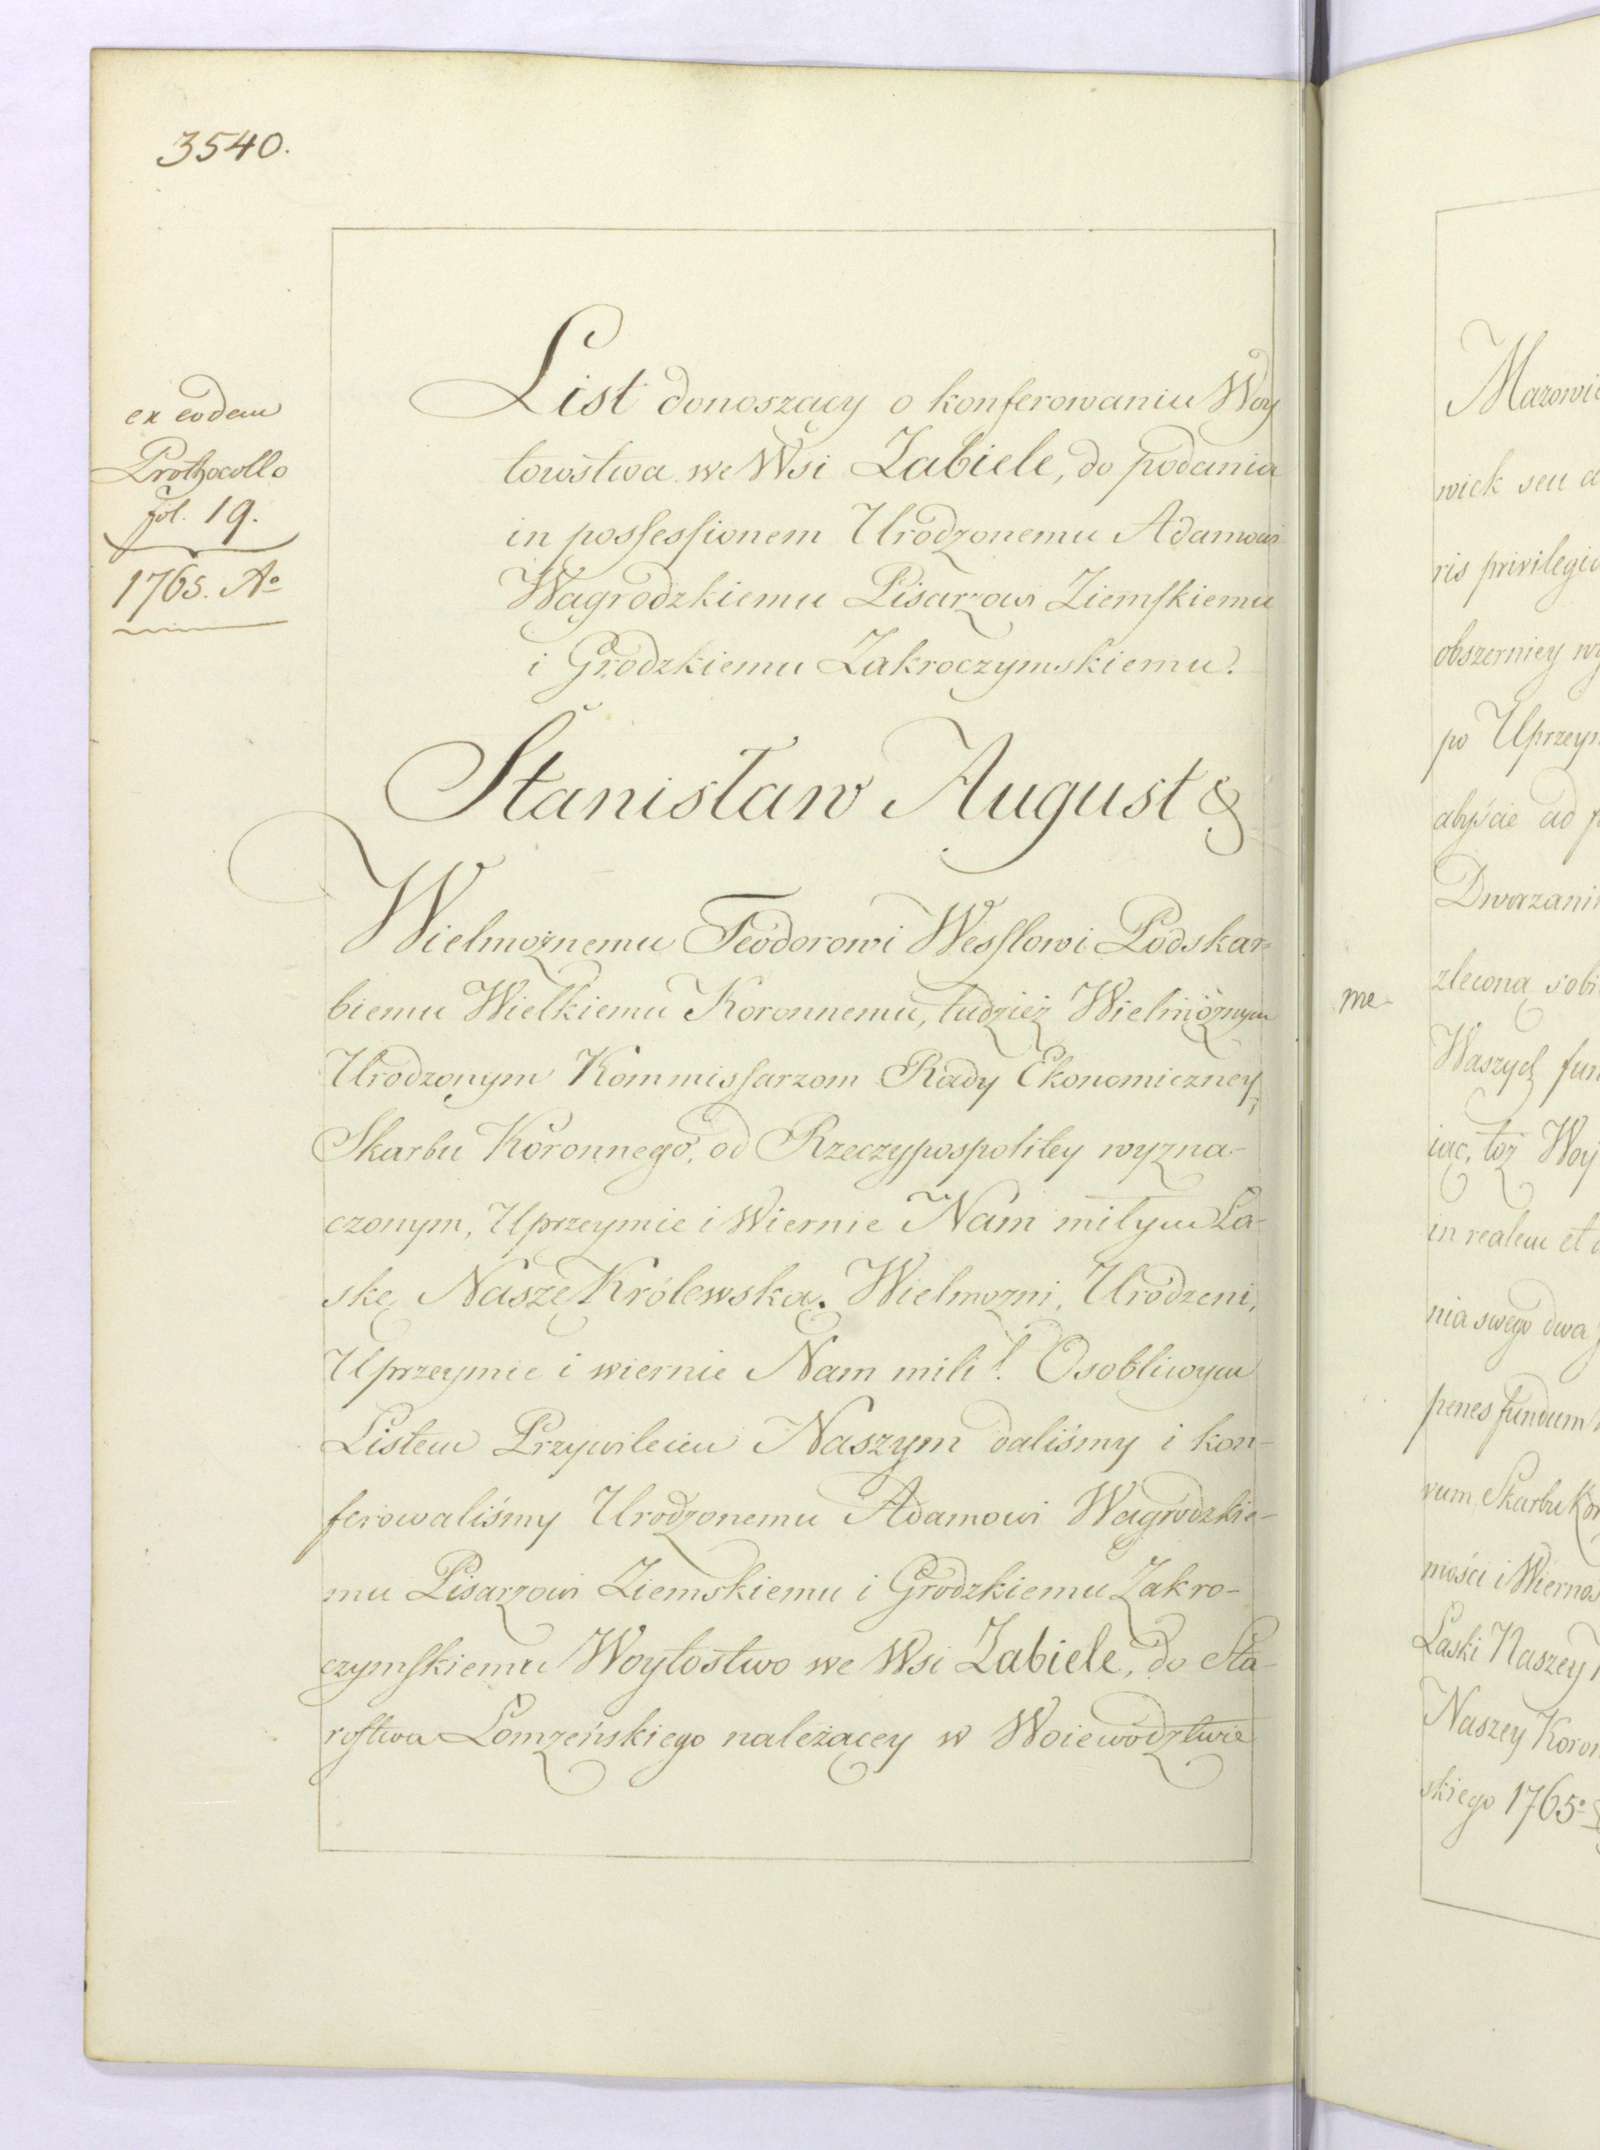 3540.
ex eodem
Prothocollo
fol. 19.
1765. Aº
List donoszący o konferowaniu Woy
towstwa we Wsi Zabiele, do podania
in possessionem Urodzonemu Adamowi
Wagrodzkiemu Pisarzowi Ziemskiemu
i Grodzkiemu Zakroczymskiemu.
Stanisław August &
Wielmożnemu Teodorowi Wesslowi Podskar-
biemu Wielkiemu Koronnemu, tudzież Wielmożnym
Urodzonym Kommissarzom Rady Ekonomiczney,
Skarbu Koronnego, od Rzeczypospolitey wyzna-
czonym, Uprzeymie i Wiernie Nam miłym Ła-
skę Naszę Królewską. Wielmożni, Urodzeni,
Uprzeymie i wiernie Nam mili! Osobliwym
Listem Przywileiem Naszym daliśmy i kon-
ferowaliśmy Urodzonemu Adamowi Wagrodzkie-
mu Pisarzowi Ziemskiemu i Grodzkiemu Zakro-
czymskiemu Woytostwo we Wsi Zabiele, do Sta-
rostwa Łomżeńskiego należącey w Woiewództwie
me
wiek seu
ris
obszerniey
po
abyście ad
zlecona
Waszych
iąc, toż
in realem et
nia swego dwa
penes fundum
rum Skarbu
mości i
Łaski Naszey
Naszey
skiego 1765º